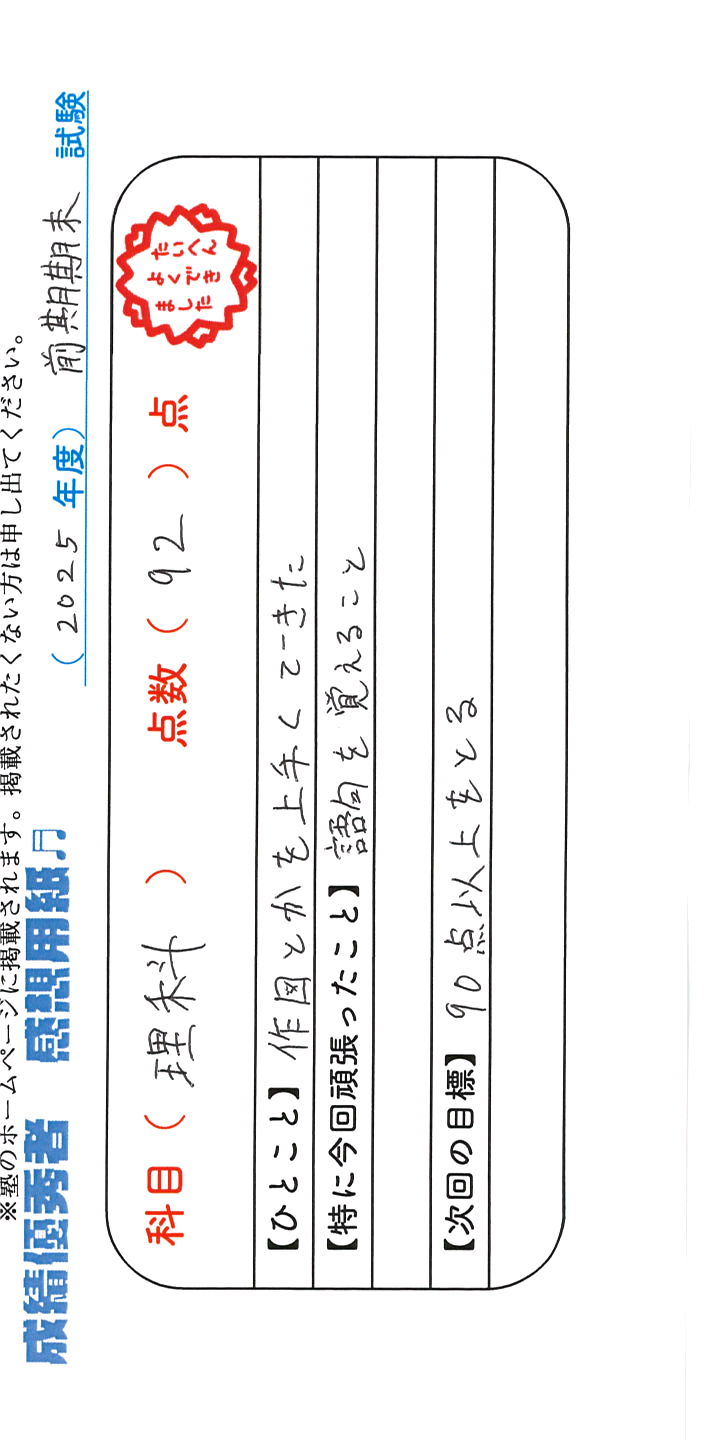 ※塾のホームページに掲載されます。掲載されたくない方は申し出てください。
成績優秀者 感想用紙♬
(2025 年度) 前期期末 試験
科目(理科) 点数(92)点
たいへん
よくでき
ました
【ひとこと】作図とかを上手くできた
【特に今回頑張ったこと】語句を覚えること
【次回の目標】90点以上をとる